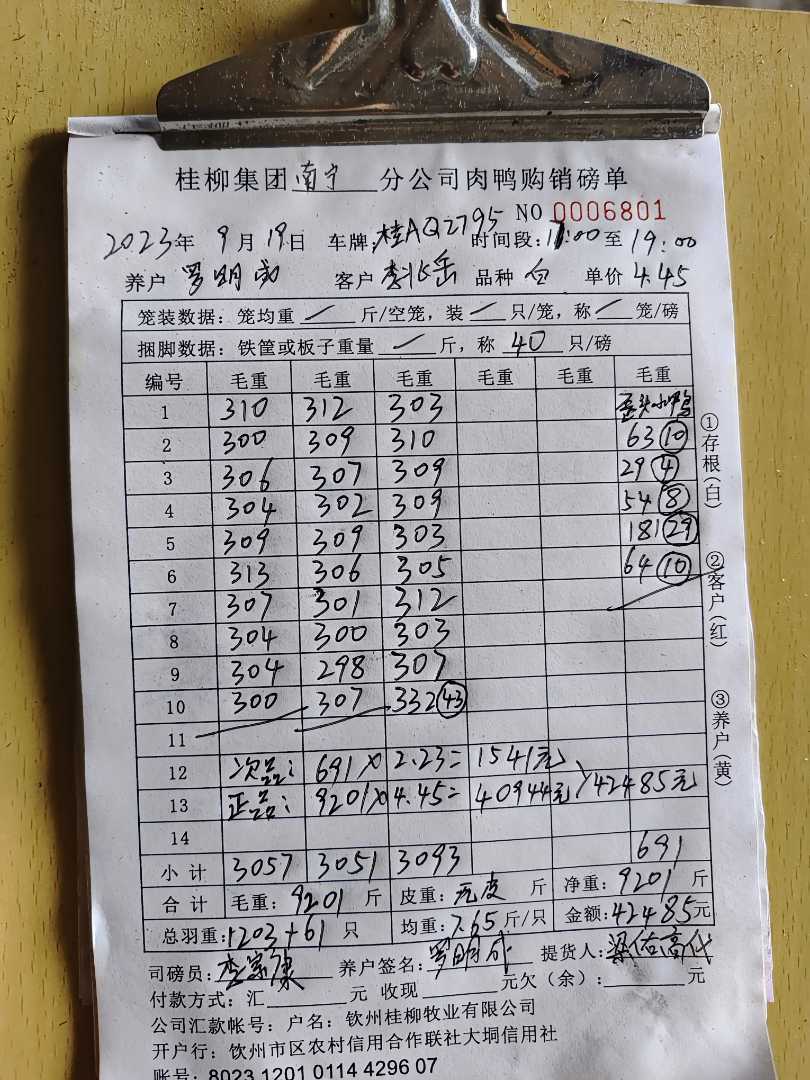 桂柳集团 南宁 分公司肉鸭购销磅单
NO 0006801
2023年 9月 19日 车牌:桂AQ2795 时间段:17:00至 19:00
养户 罗明成 客户 品种 白 单价 4.45
笼装数据:笼均重 / 斤/空笼,装 / 只/笼,称 / 笼/磅
捆脚数据:铁筐或板子重量 / 斤,称 40 只/磅
编号 毛重 毛重 毛重 毛重 毛重 毛重
1 310 312 303 歪头小鸭
2 300 309 310 63 10
3 306 307 309 29 4
4 304 302 309 54 8
5 309 309 303 181 29
6 313 306 305 64 10
7 307 301 312
8 304 300 303
9 304 298 307
10 300 307 332 43
11
12 次品: 691×2.23=1541元
13 正品: 9201×4.45=40944元 42485元
14
小计 3057 3051 3093 691
合计 毛重:9201斤 皮重:无皮 斤 净重:9201斤
总羽重:1203+61只 均重:7.65斤/只 金额:42485元
司磅员: 养户签名:罗明成 提货人:
付款方式:汇 元 收现 元欠(余): 元
公司汇款帐号:户名:钦州桂柳牧业有限公司
开户行:钦州市区农村信用合作联社大垌信用社
账号:8023 1201 0114 4296 07
①存根(白)
②客户(红)
③养户(黄)